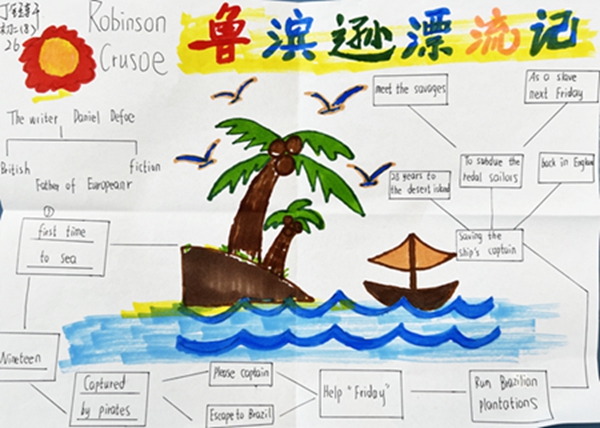 Robinson
Crusoe
鲁滨逊漂流记
26
The writer Daniel Defoe
British
fiction
Father of European
①
first time
to sea
Nineteen
Captured
by pirates
Please captain
Escape to Brazil
Help "Friday"
Run Brazilian
plantations
Saving the
ship's captain
28 years to
the desert island
To subdue the
redal sailors
back in England
meet the savages
As a slave
next Friday